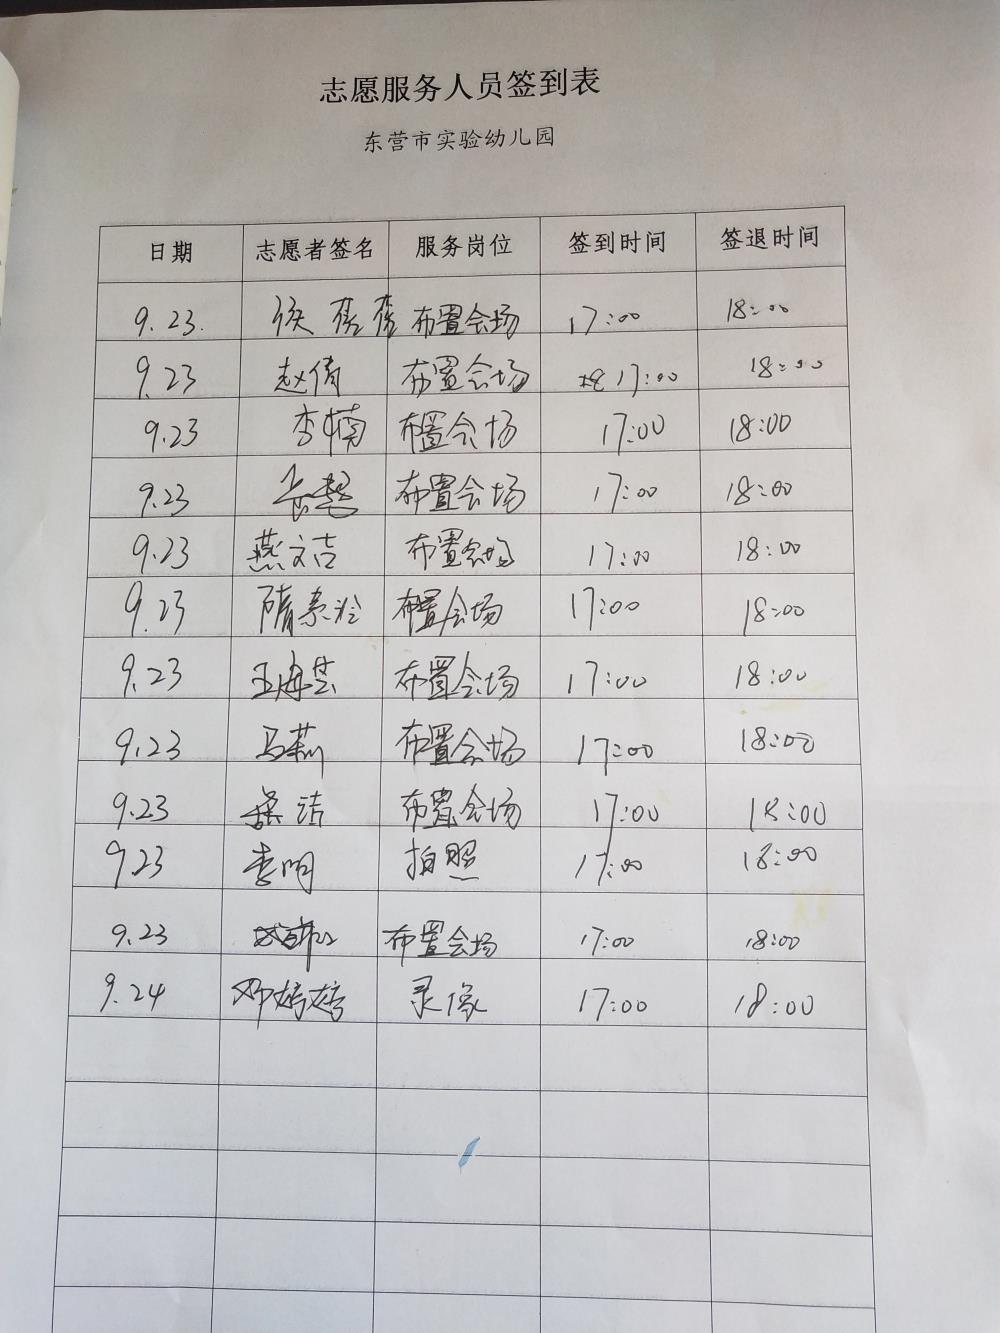 志愿服务人员签到表
东营市实验幼儿园
日期 志愿者签名 服务岗位 签到时间 签退时间
9.23. 侯蓓蓓 布置会场 17:00 18:00
9.23 赵倩 布置会场 17:00 18:00
9.23 李楠 布置会场 17:00 18:00
9.23 布置会场 17:00 18:00
9.23 燕文吉 布置会场 17:00 18:00
9.23 隋素玲 布置会场 17:00 18:00
9.23 王海芸 布置会场 17:00 18:00
9.23 马莉 布置会场 17:00 18:00
9.23 洁 布置会场 17:00 18:00
9.23 李明 拍照 17:00 18:00
9.23 布置会场 17:00 18:00
9.24 邓婷婷 录像 17:00 18:00